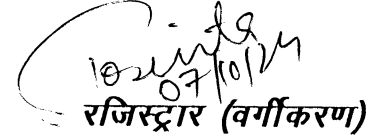 07/10/24
रजिस्ट्रार (वर्गीकरण)